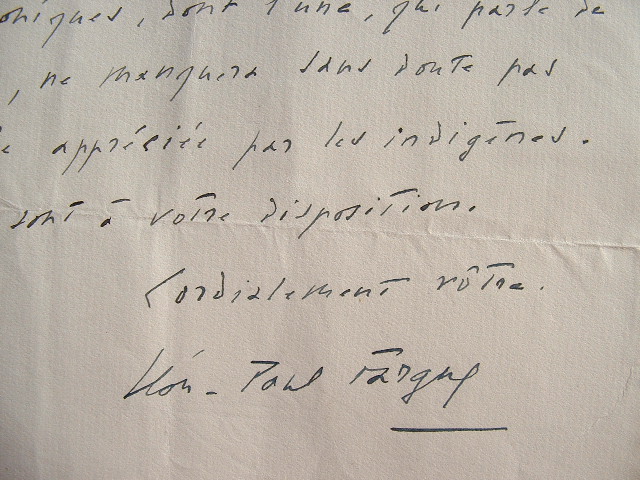 oniques, dont l'une, qui parle de
, ne manquera sans doute pas
appréciée par les indigènes.
sont à votre disposition.
Cordialement vôtre.
Léon-Paul Fargue